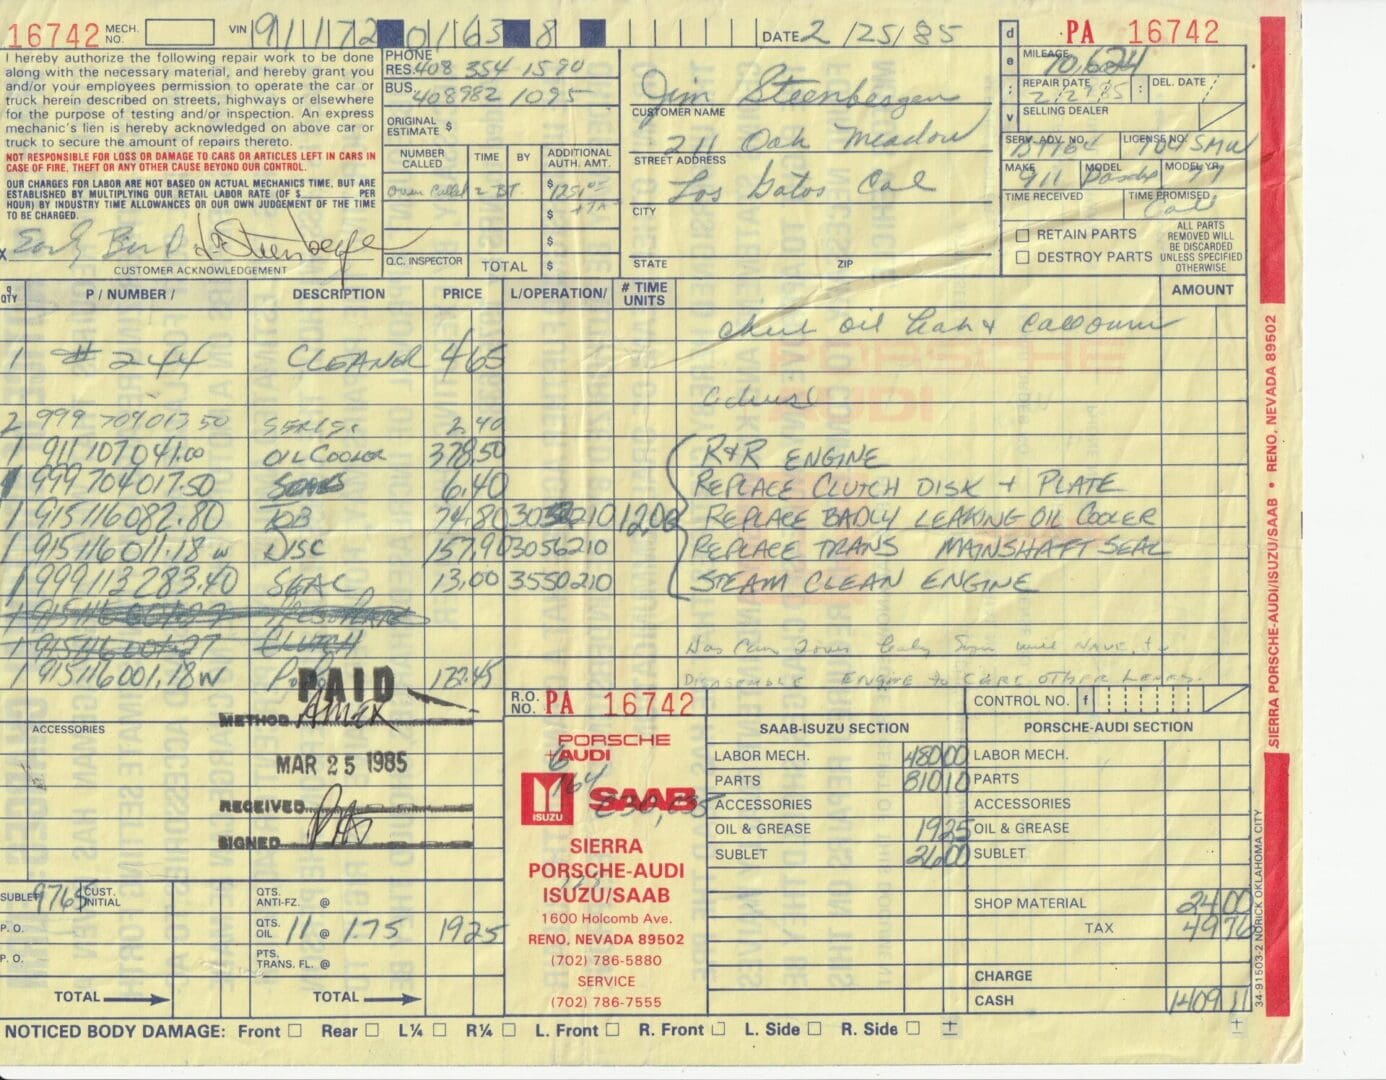 16742 MECH. NO. VIN 9111720163 8 DATE 2/25/85 PA 16742
I hereby authorize the following repair work to be done
along with the necessary material, and hereby grant you
and/or your employees permission to operate the car or
truck herein described on streets, highways or elsewhere
for the purpose of testing and/or inspection. An express
mechanic's lien is hereby acknowledged on above car or
truck to secure the amount of repairs thereto.
NOT RESPONSIBLE FOR LOSS OR DAMAGE TO CARS OR ARTICLES LEFT IN CARS IN
CASE OF FIRE, THEFT OR ANY OTHER CAUSE BEYOND OUR CONTROL.
OUR CHARGES FOR LABOR ARE NOT BASED ON ACTUAL MECHANICS TIME, BUT ARE
ESTABLISHED BY MULTIPLYING OUR RETAIL LABOR RATE (OF $ PER
HOUR) BY INDUSTRY TIME ALLOWANCES OR OUR OWN JUDGEMENT OF THE TIME
TO BE CHARGED.
X Early Bird
CUSTOMER ACKNOWLEDGEMENT
PHONE
RES. 408 354 1590
BUS. 408 982 1095
ORIGINAL
ESTIMATE $
NUMBER CALLED TIME BY ADDITIONAL AUTH. AMT.
$
$
$
Q.C. INSPECTOR TOTAL $
Jim Steenbergen
CUSTOMER NAME
211 Oak Meadow
STREET ADDRESS
Los Gatos Cal
CITY
STATE ZIP
d e l v
MILEAGE 70,624
REPAIR DATE DEL. DATE
SELLING DEALER
SERV. ADV. NO. LICENSE NO.
MAKE 911 MODEL MODEL YR.
TIME RECEIVED TIME PROMISED
RETAIN PARTS
DESTROY PARTS
ALL PARTS
REMOVED WILL
BE DISCARDED
UNLESS SPECIFIED
OTHERWISE
QTY P / NUMBER / DESCRIPTION PRICE L/OPERATION/ # TIME UNITS AMOUNT
check oil leak &
1 # 244 CLEANER 4 65
2 999 704 013 50 SEALS 2.40
1 911 107 041.00 OIL COOLER 378.50 R&R ENGINE
1 999 704 017.50 6.40 REPLACE CLUTCH DISK + PLATE
1 915 116 082.80 TOB 74.80 210 12.00 REPLACE BADLY LEAKING OIL COOLER
1 915 116 011.18 w DISC 157.90 03056210 REPLACE TRANS MAINSHAFT SEAL
1 999 113 283.40 SEAL 13.00 3550210 STEAM CLEAN ENGINE
CLUTCH
1 915 116 001.18 W
DISASSEMBLE ENGINE TO CURE OTHER LEAKS.
PAID
METHOD AMEX
MAR 25 1985
RECEIVED
SIGNED
ACCESSORIES
R.O. NO. PA 16742
PORSCHE
+AUDI
ISUZU
SAAB
SIERRA
PORSCHE-AUDI
ISUZU/SAAB
1600 Holcomb Ave.
RENO, NEVADA 89502
(702) 786-5880
SERVICE
(702) 786-7555
CONTROL NO. f
SAAB-ISUZU SECTION PORSCHE-AUDI SECTION
LABOR MECH. 480 00 LABOR MECH.
PARTS 810 10 PARTS
ACCESSORIES ACCESSORIES
OIL & GREASE 19 25 OIL & GREASE
SUBLET 26 00 SUBLET
SHOP MATERIAL 24 00
TAX 49 76
CHARGE
CASH 1409 11
SUBLET 9765 CUST. INITIAL
P. O.
P. O.
TOTAL
QTS. ANTI-FZ. @
QTS. OIL 11 @ 1.75 19 25
PTS. TRANS. FL. @
TOTAL
NOTICED BODY DAMAGE: Front Rear L¼ R¼ L. Front R. Front L. Side R. Side
SIERRA PORSCHE-AUDI/ISUZU/SAAB • RENO, NEVADA 89502
34-91503-2 NORICK OKLAHOMA CITY